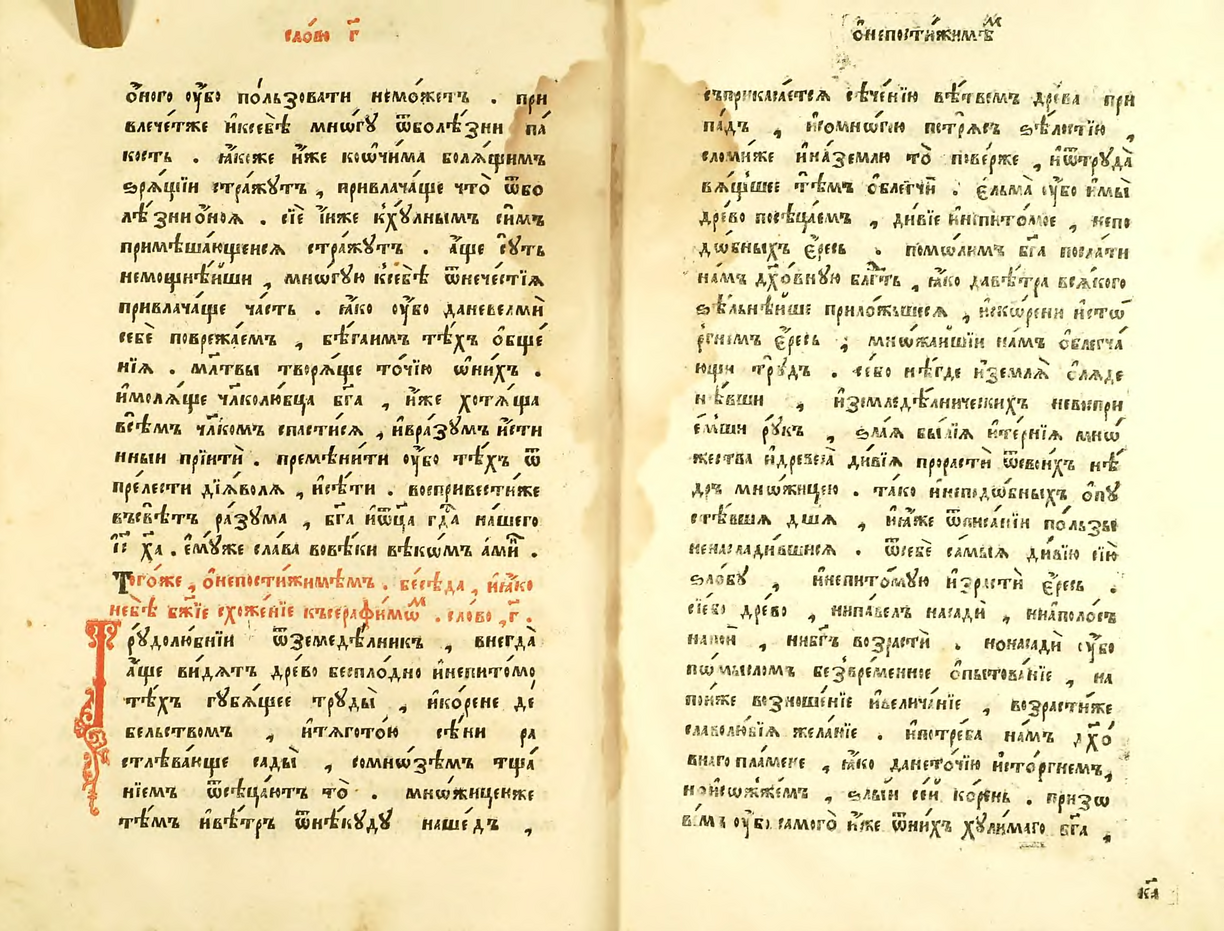 сло́во г҃
о҆́ного ᲂу҆̀бо по́льзовати немо́жетъ . при
влече́тже и҆ксебѣ̀ мнѡ́гꙋ ѿболѣ́зни па́
кость . ꙗ҆́коже и҆̀же коѡ́чима болѧ́щимъ
зрѧ́щїи стра́жꙋтъ , привлача́ще что̀ ѿбо
лѣ́зниѻ҆́ноѧ . сїѐ и҆̀же к̾хꙋ́лнымъ си́мъ
примѣша́ющенсѧ стра́жꙋтъ . а҆́ще сꙋ́ть
немощнѣ́йши , мнѡ́гꙋю ксебѣ̀ ѿнече́стїѧ
привлача́ще ча́сть . ꙗ҆́ко ᲂу҆̀бо даневелмѝ
себѐ поврежа́емъ , бѣ́гаимъ тѣ́хъ о҆́бще
нїѧ . мл҃твы творѧ́ще то́чїю ѡ҆ни́хъ .
и҆молѧ́ще чл҃колю́бца бг҃а , и҆̀же хотѧ́ща
всѣ́мъ чл҃комъ спасти́сѧ , и҆вра́зꙋмъ и҆́сти
нныи прїитѝ . премѣни́ти ᲂу҆̀бо тѣ́хъ ѿ
пре́лести дїѧ́волѧ , и҆сѣ́ти . воспривести́же
въсвѣ́тъ ра́зꙋма , бг҃а и҆ѻц҃а гд҇а на́шего
і҆с҃ х҃а . є҆мꙋ́же сла́ва вовѣ́ки вѣкѡ́мъ а҆ми́н .
Того́же , ѻ҆непостижи́мѣмъ . бесѣ́да , и҆ꙗ҆́ко
небѣ̀ бж҃їе схоже́нїе късерафи́мѡм . сло́во , г҃ .
Трꙋдолю́бнїи ѿземедѣ́лникъ , внегда̀
а҆́ще ви́дѧтъ дре́во беспло́дно и҆непито́мо
тѣ́хъ гꙋбѧ́щее трꙋды̀ , и҆ко́рене де
бе́льствомъ , и҆тѧгото́ю сѣ́ни ра
стлѣва́юще сады̀ , сомнѡ́зѣмъ тща́
нїемъ ѿсѣца́ютъ то̀ . мно́жиценже
тѣ́мъ и҆вѣ́тръ ѿнѣ́кꙋдꙋ наше́дъ ,
ѻ҆непостижи́мѣм
съприкаса́етсѧ сѣче́нїю вѣ́твемъ дре́ва при
па́дъ , и҆сомно́гою потрѧ́съ ѕѣ́лостїю ,
сломи́же и҆на́землю то̀ пове́рже , и҆ѿтрꙋда̀
вѧ́щшее тѣ́мъ ѻ҆блегчѝ . є҆льма̀ ᲂу҆̀бо и҆мы̀
дре́во посѣца́емъ , ди́вїе и҆непито́мое , непо
до́бныхъ є҆́ресь . помо́лимъ бг҃а посла́ти
на́мъ дх҃о́внꙋю блг҇ть , ꙗ҆́ко давѣ́тра всѧ́кого
ѕѣ́льнѣ́йше приложи́вшесѧ , и҆скѡ́рени и҆сто́
ргнемъ є҆́ресь , мнѡ́жайшїи на́мъ ѻ҆блегча́
ющи трꙋ́дъ . се́бо нѣ́где и҆землѧ̀ ѻ҆лѧде
нѣ́вши , и҆земледѣ́лническихъ невоспри
е́мши рꙋ́къ , ѕла́ѧ бы́лїѧ и҆те́рнїѧ мно́
жества и҆древеса̀ ди́вїѧ прорастѝ ѿсвои́хъ нѣ́
дръ мно́жицею . та́ко и҆неподо́бныхъ ѻ҆пꙋ
стѣ́вшѧ дш҃а , и҆ꙗ҆́же ѿписа́нїи по́льзы
ненаслади́вшисѧ . ѿсебѐ самы́ѧ ди́вїю сїю̀
ѕло́бꙋ , и҆непито́мꙋю и҆зрастѝ є҆́ресь .
сїе́бо дре́во , нипа́велъ насадѝ , ниапо́лосъ
напоѝ , нибг҃ъ возрастѝ . нонасадѝ ᲂу҆̀бо
по́мысломъ безвре́менное ѻ҆пытова́нїе , на
пои́же возноше́нїе и҆велича́нїе , возрасти́же
славолю́бїѧ жела́нїе . и҆потре́ба на́мъ дх҃о́
внаго пла́мене , ꙗ҆́ко дането́чїю и҆сто́ргнемъ,
но и҆сожже́мъ , ѕлы́и се́й ко́рень . призо
ве́мъ ᲂу҆̀бо самого̀ и҆̀же ѿни́хъ хꙋли́маго бг҃а ,
к҃а